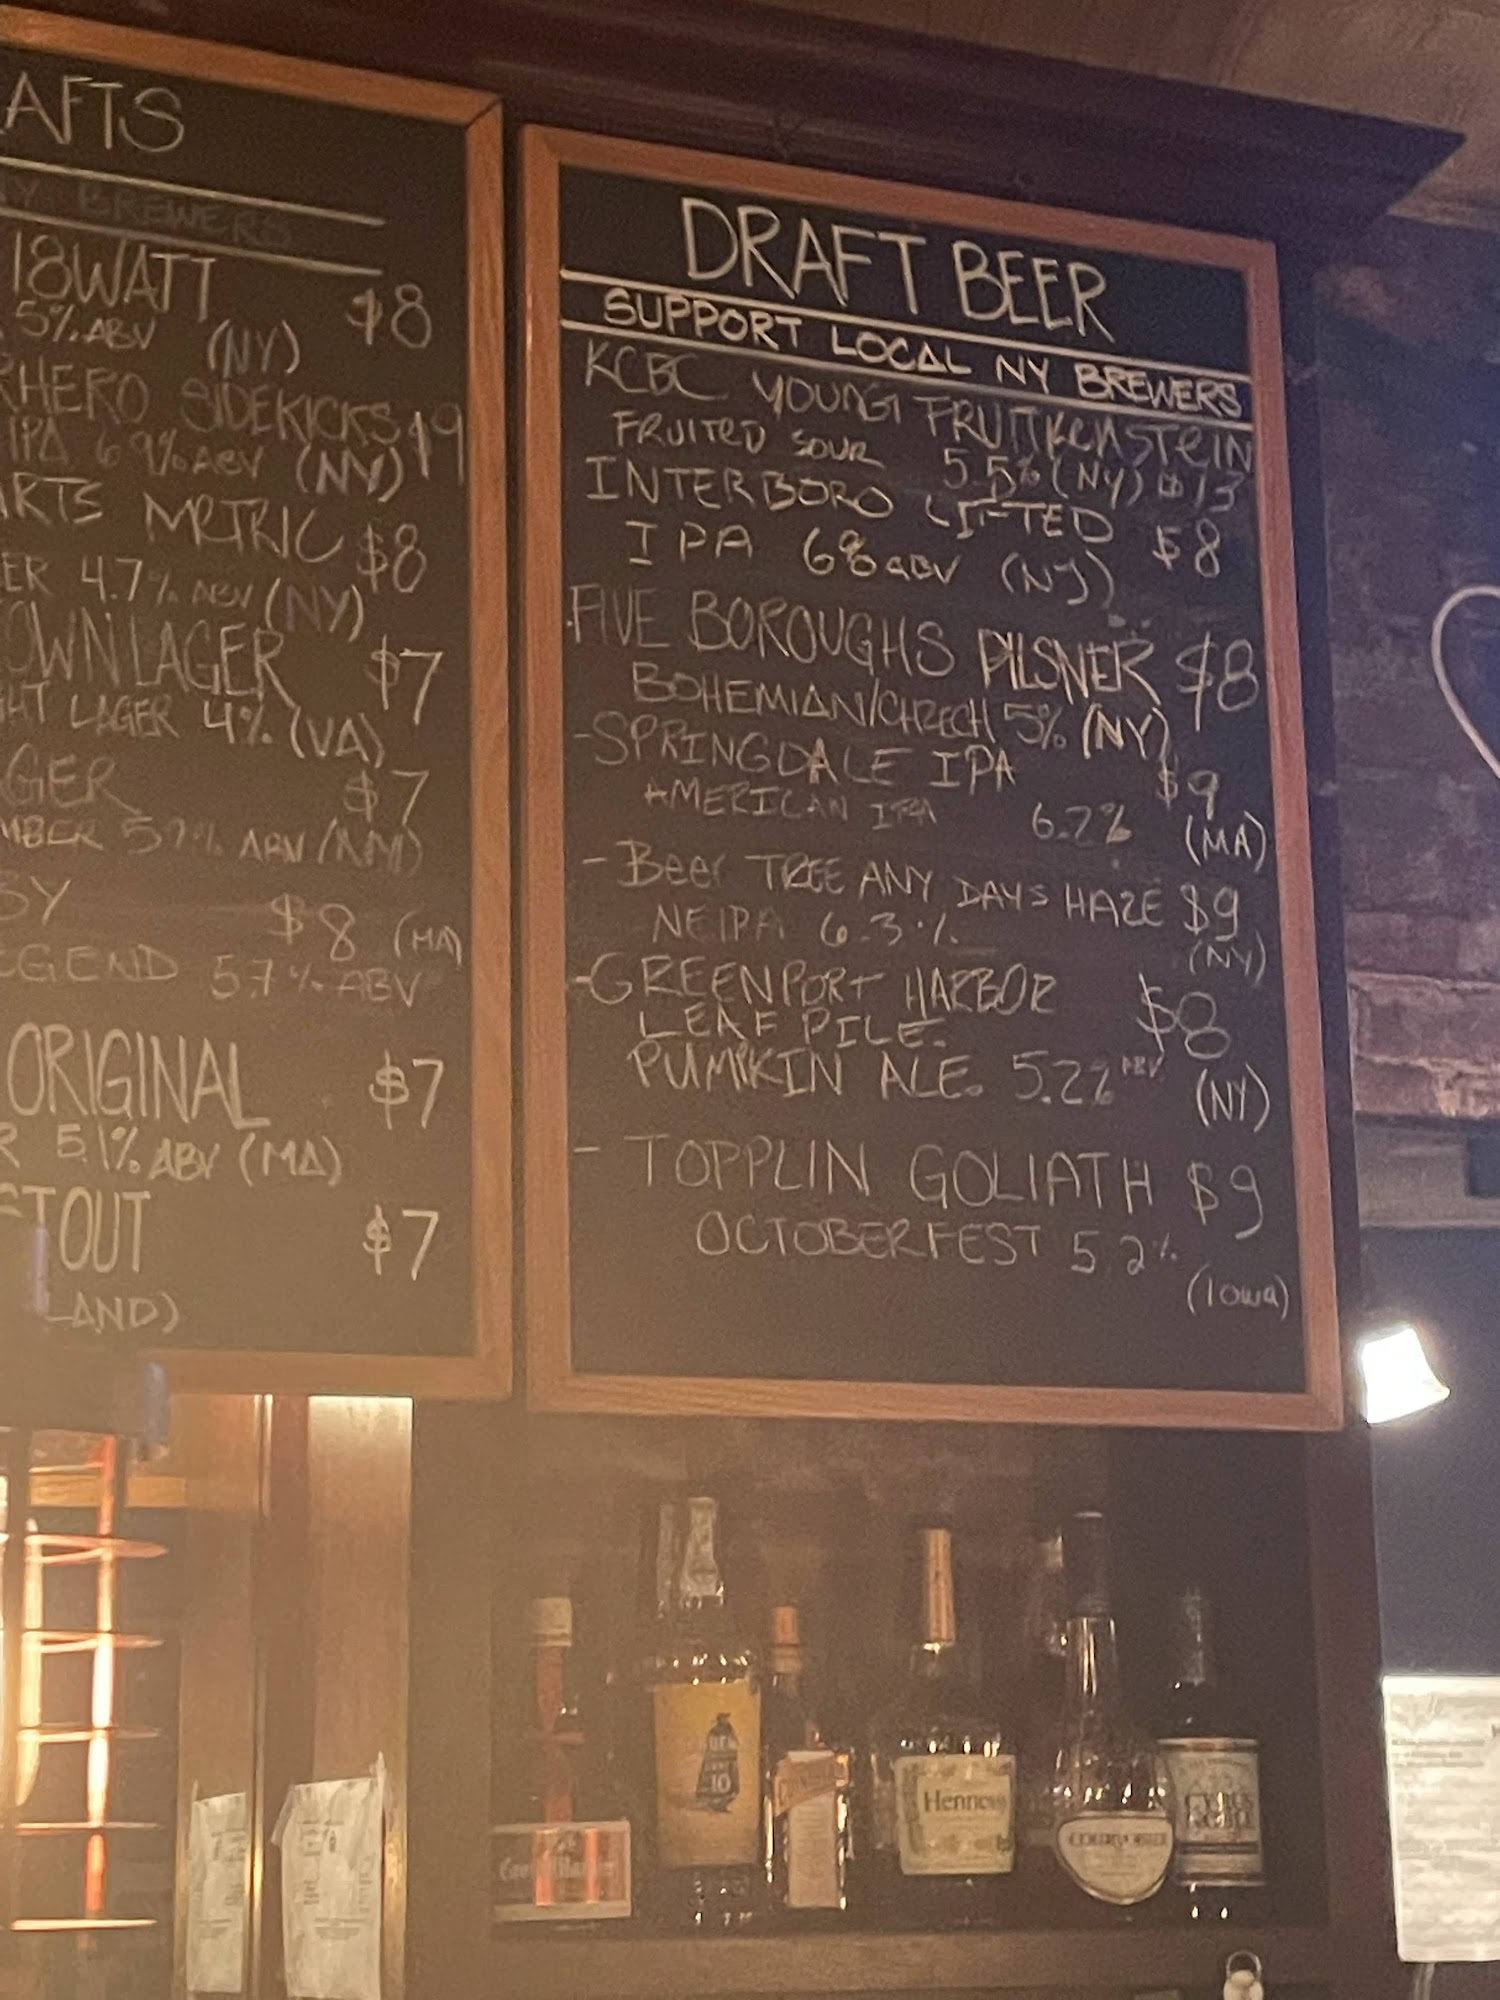 AFTS
Y BREWERS
18WATT $8
5% ABV (NY)
RHERO SIDEKICKS $9
IPA 6.9% ABV (NY)
ARTS METRIC $8
ER 4.7% ABV (NY)
OWN LAGER $7
GHT LAGER 4% (VA)
GER $7
MBER 5.2% ABV
SY $8 (MA)
EGEND 5.7% ABV
ORIGINAL $7
R 5.1% ABV (MA)
STOUT $7
LAND)
DRAFT BEER
SUPPORT LOCAL NY BREWERS
KCBC YOUNG FRUITKENSTEIN
FRUITED SOUR 5.5% (NY) $13
INTERBORO LIFTED $8
IPA 6% ABV (NY)
FIVE BOROUGHS PILSNER $8
BOHEMIAN/CHZECH 5% (NY)
-SPRINGDALE IPA $9
AMERICAN IPA 6.2% (MA)
- Beer TREE ANY DAYS HAZE $9
NEIPA 6.3% (NY)
-GREENPORT HARBOR $8
LEAF PILE.
PUMPKIN ALE. 5.2% ABV (NY)
- TOPPLIN GOLIATH $9
OCTOBERFEST 5.2%
(Iowa)
10
Hennessy